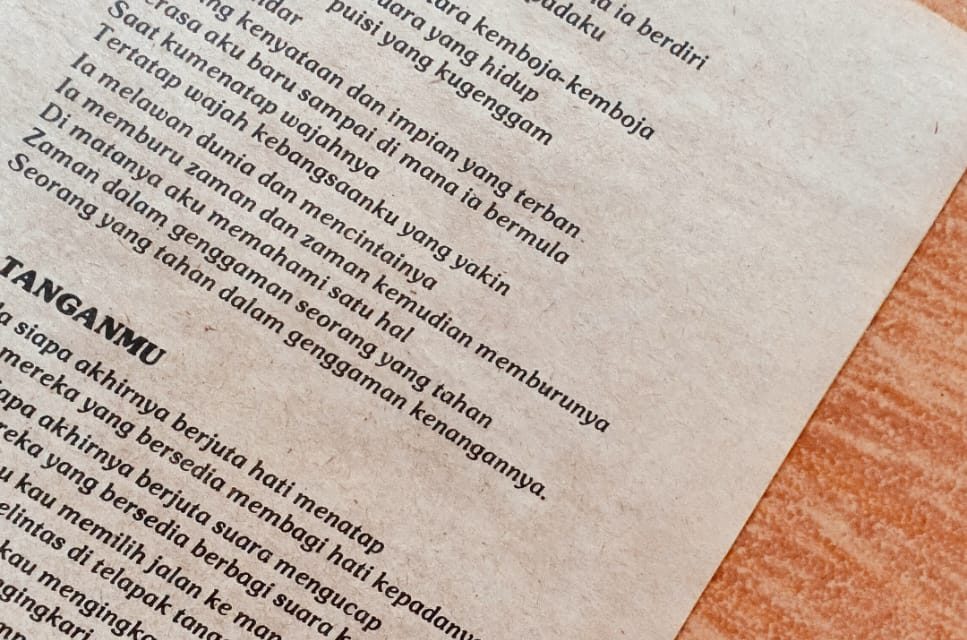 ia berdiri
padaku
ara kemboja-kemboja
uara yang hidup
puisi yang kugenggam
dar
ng kenyataan dan impian yang terban
erasa aku baru sampai di mana ia bermula
Saat kumenatap wajahnya
Tertatap wajah kebangsaanku yang yakin
Ia melawan dunia dan mencintainya
Ia memburu zaman dan zaman kemudian memburunya
Di matanya aku memahami satu hal
Zaman dalam genggaman seorang yang tahan
Seorang yang tahan dalam genggaman kenangannya.
TANGANMU
a siapa akhirnya berjuta hati menatap
mereka yang bersedia membagi hati kepadanya
apa akhirnya berjuta suara mengucap
reka yang bersedia berbagi suara k
u kau memilih jalan ke man
elintas di telapak tanga
kau mengingka
ngingkari